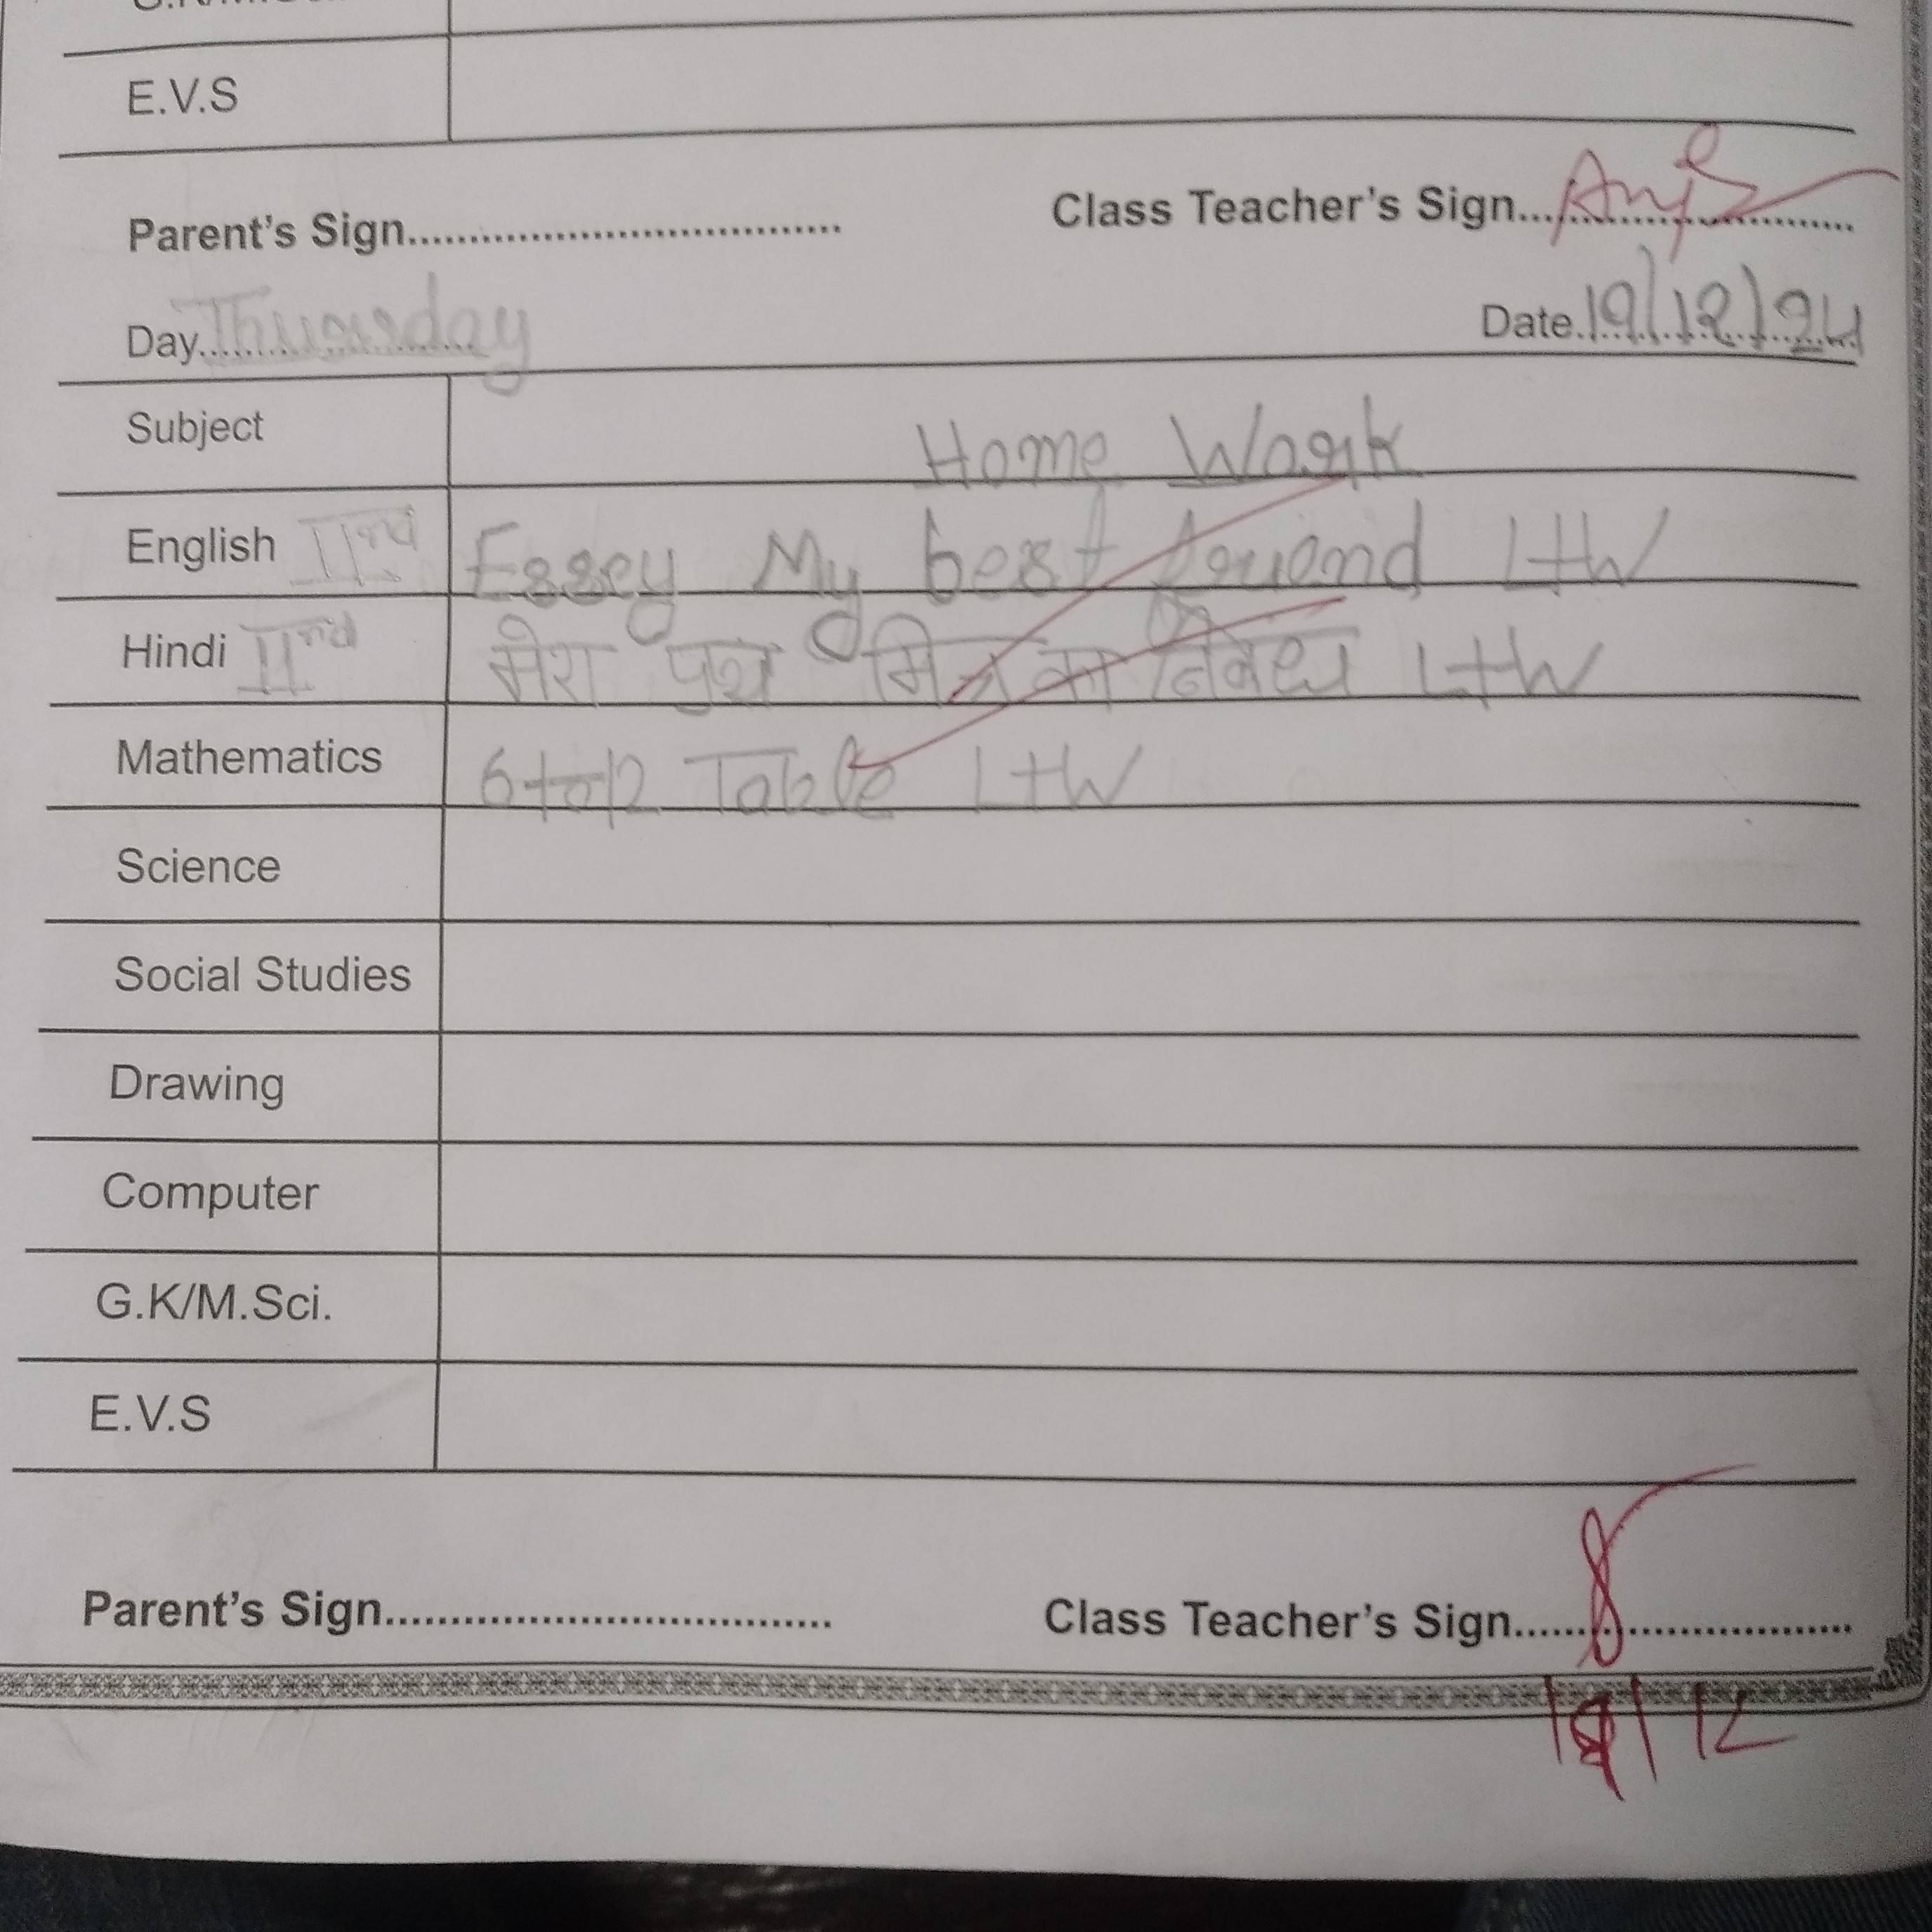 E.V.S
Parent's Sign.................................... Class Teacher's Sign...
Day Thuarsday Date 19/12/24
Subject Home Work
English IInd Essey My best friend L+W
Hindi IInd मेरा मित्र का L+W
Mathematics 6 to 12 Table L+W
Science
Social Studies
Drawing
Computer
G.K/M.Sci.
E.V.S
Parent's Sign.................................... Class Teacher's Sign...........................
19/12